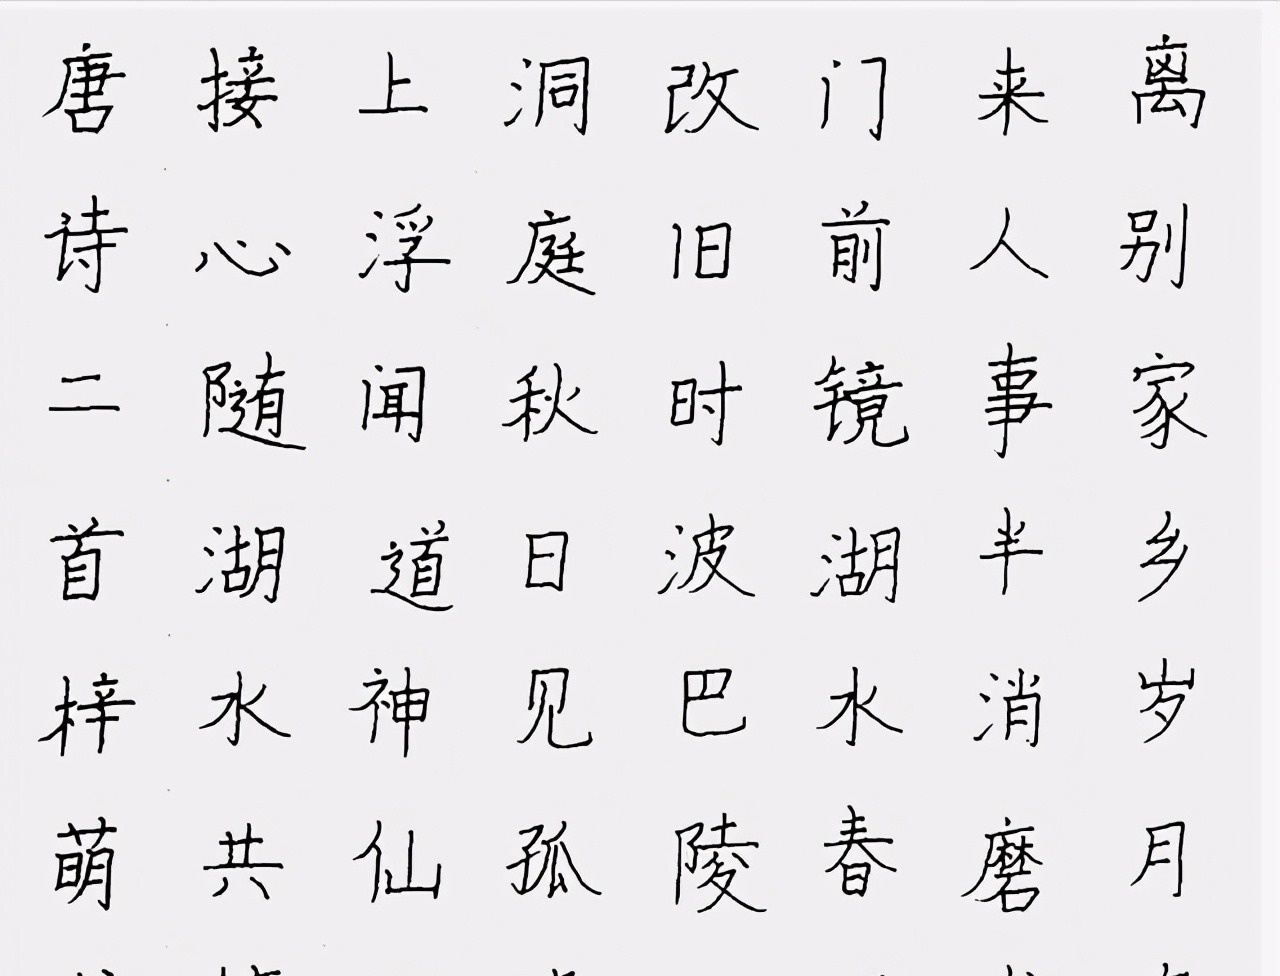 离别家乡岁月
来人事半消磨
门前镜湖水春
改旧时波巴陵
洞庭秋日见孤
上浮闻道神仙
接心随湖水共
唐诗二首梓萌